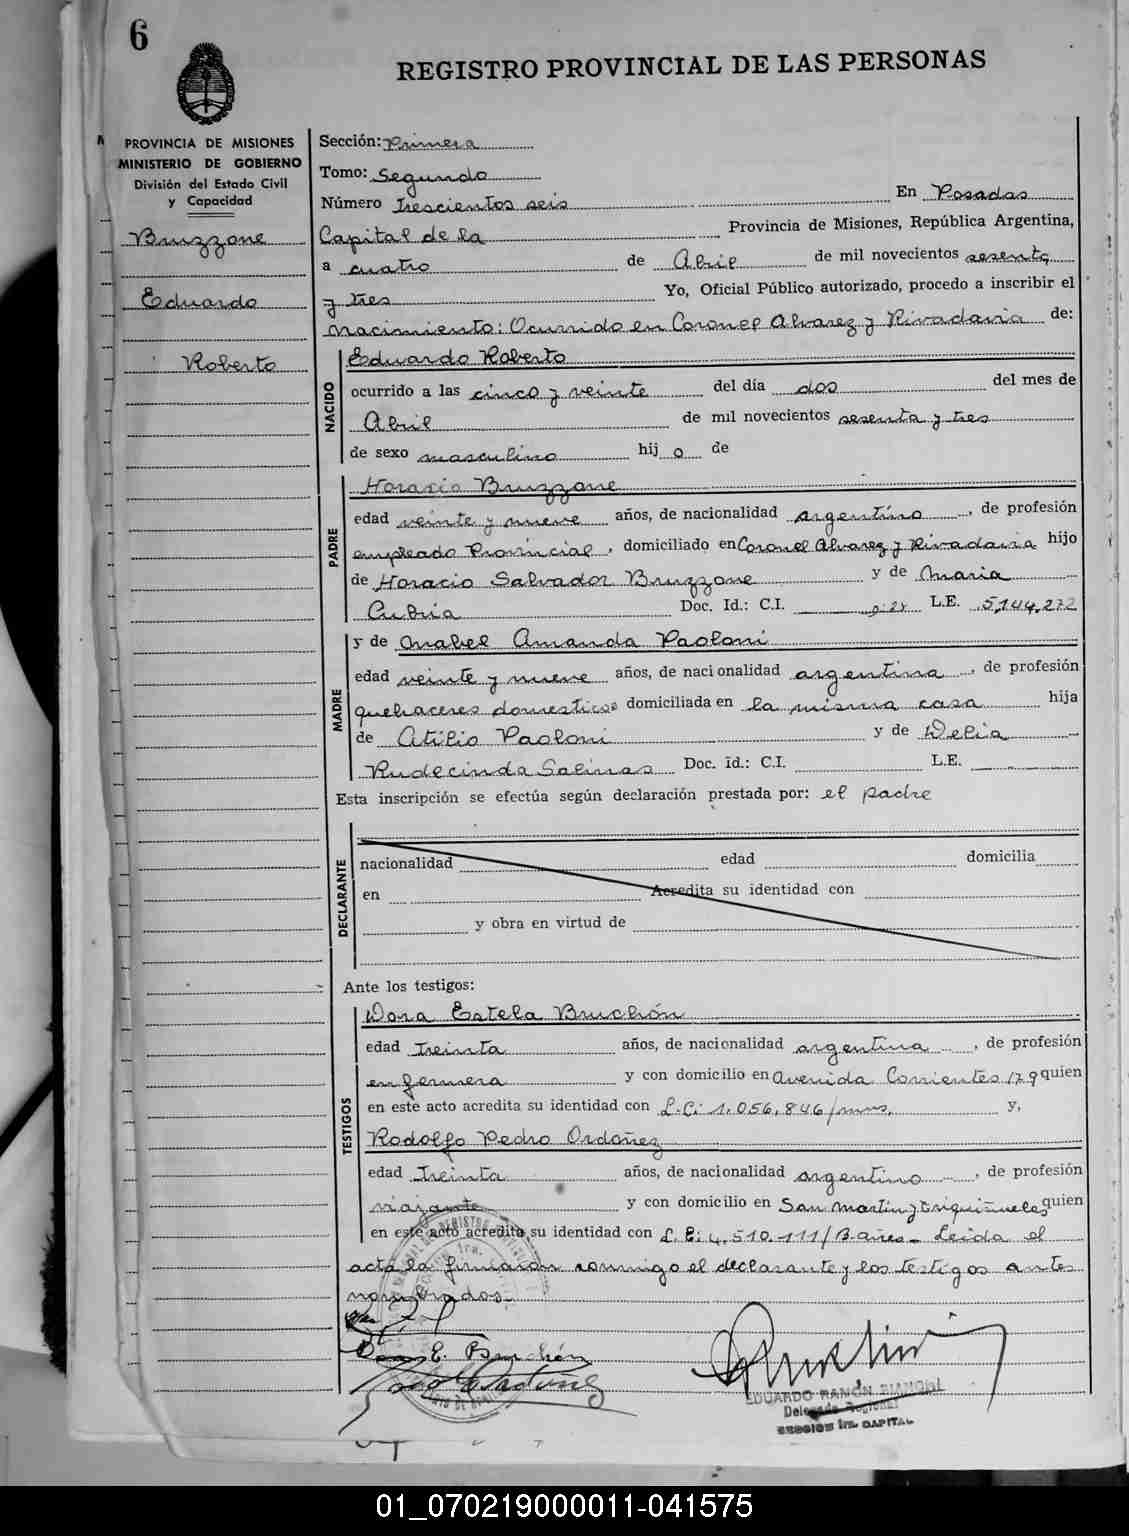 6
REGISTRO PROVINCIAL DE LAS PERSONAS
PROVINCIA DE MISIONES
MINISTERIO DE GOBIERNO
División del Estado Civil
y Capacidad
Bruzzone
Eduardo
Roberto
Sección: Primera
Tomo: Segundo
Número Trescientos seis En Posadas
Capital de la Provincia de Misiones, República Argentina,
a cuatro de Abril de mil novecientos sesenta
y tres Yo, Oficial Público autorizado, procedo a inscribir el
Nacimiento: Ocurrido en Coronel Alvarez y Rivadavia de:
NACIDO
Eduardo Roberto
ocurrido a las cinco y veinte del día dos del mes de
Abril de mil novecientos sesenta y tres
de sexo masculino hij o de
PADRE
Horacio Bruzzone
edad veinte y nueve años, de nacionalidad argentino, de profesión
empleado Provincial, domiciliado en Coronel Alvarez y Rivadavia hijo
de Horacio Salvador Bruzzone y de Maria
Cubria Doc. Id.: C.I. L.E. 5,144,272
MADRE
y de Mabel Amanda Paoloni
edad veinte y nueve años, de nacionalidad argentina, de profesión
quehaceres domesticos domiciliada en la misma casa hija
de Atilio Paoloni y de Delia
Rudecinda Salinas Doc. Id.: C.I. L.E.
Esta inscripción se efectúa según declaración prestada por: el padre
DECLARANTE
nacionalidad edad domicilia
en Acredita su identidad con
y obra en virtud de
Ante los testigos:
TESTIGOS
Dora Estela Bruchón
edad Treinta años, de nacionalidad argentina, de profesión
enfermera y con domicilio en Avenida Corrientes 179 quien
en este acto acredita su identidad con L.C: 1.056,846/mns, y,
Rodolfo Pedro Ordoñez
edad Treinta años, de nacionalidad argentino, de profesión
viajante y con domicilio en San Martin y quien
en este acto acredita su identidad con L.E: 4,510.111/B aires- Leida el
acta la firmaron conmigo el declarante y los testigos antes
nombrados-
Dora E. Bruchón
EDUARDO RAMÓN BIANCHI
Delegado Regional
SECCION 1ra. CAPITAL
01_070219000011-041575